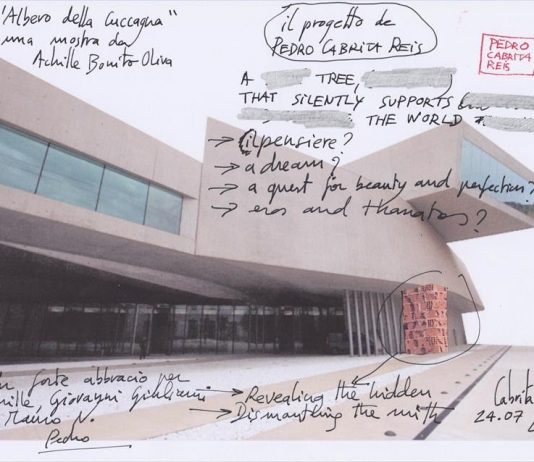 "Albero della Cuccagna"
una mostra da
Achille Bonito Oliva
il progetto de
PEDRO CABRITA REIS
PEDRO
CABRITA
REIS
A TREE,
THAT SILENTLY SUPPORTS
THE WORLD
→ il pensiere?
→ a dream?
→ a quest for beauty and perfection?
→ eros and thanatos?
forte abbraccio per
Giovanni Giuliani
Pedro
→ Revealing the hidden
→ Dismantling the mith
Cabrita
24.07